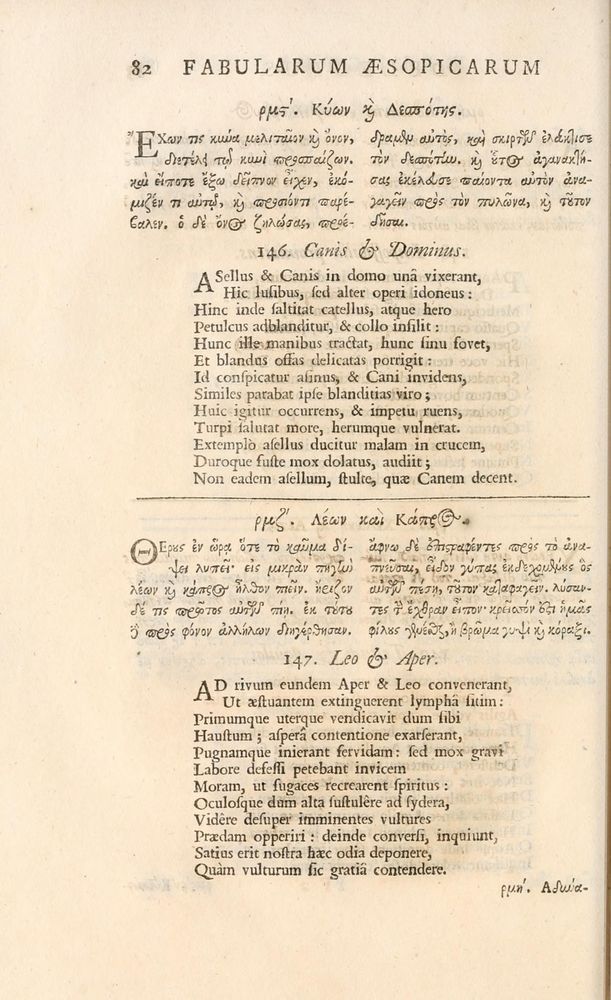 82 FABULARUM ÆSOPICARUM
ρμϛʹ. Κύων κ̀ Δεσπότης.
ἜΧων τις κύνα μελιταῖον κ̀ ὄνον,
διετέλει τῷ κυνὶ προσπαίζων.
καὶ εἴποτε ἔξω δεῖπνον εἶχεν, ἐκό-
μιζέν τι αὐτῷ, κ̀ προσιόντι παρέ-
βαλεν. ὁ δὲ ὄνος ζηλώσας, προσέ-
δραμεν αὐτὸς, καὶ σκιρτῶν ἐλάκτισε
τὸν δεσπότην. κ̀ οὗτος ἀγανακτή-
σας ἐκέλευσε παίοντα αὐτὸν ἀνα-
γαγεῖν πρὸς τὸν πυλῶνα, κ̀ τοῦτον
δῆσαι.
146. Canis & Dominus.
ASellus & Canis in domo unâ vixerant,
Hic lusibus, sed alter operi idoneus:
Hinc inde saltitat catellus, atque hero
Petulcus adblanditur, & collo insilit:
Hunc ille manibus tractat, hunc sinu fovet,
Et blandus offas delicatas porrigit:
Id conspicatur asinus, & Cani invidens,
Similes parabat ipse blanditias viro;
Huic igitur occurrens, & impetu ruens,
Turpi salutat more, herumque vulnerat.
Extemplo asellus ducitur malam in crucem,
Duroque fuste mox dolatus, audiit;
Non eadem asellum, stulte, quæ Canem decent.
ρμζʹ. Λέων καὶ Κάπρος.
ΘΕρους ἐν ὥρᾳ ὅτε τὸ καῦμα δί-
ψει λυπεῖ· εἰς μικρὰν πηγὴν
λέων κ̀ κάπρος ἦλθον πιεῖν. ἤριζον
δὲ τίς πρῶτος αὐτῶν πίῃ. ἐκ τούτου
ὃ πρὸς φόνον ἀλλήλων διηγέρθησαν.
ἄφνω δὲ ἐπιστραφέντες πρὸς τὸ ἀνα-
πνεῦσαι, εἶδον γύπας ἐκδεχομένους ὃς
αὐτῶν πέσῃ, τοῦτον καταφαγεῖν. λύσαν-
τες τ̀ ἔχθραν εἶπον· κρεῖσσόν ἐστι ἡμᾶς
φίλους γενέσθαι, ἢ βρῶμα γυψὶ κ̀ κόραξι.
147. Leo & Aper.
AD rivum eundem Aper & Leo convenerant,
Ut æstuantem extinguerent lymphâ sitim:
Primumque uterque vendicavit dum sibi
Haustum; asperâ contentione exarserant,
Pugnamque inierant fervidam: sed mox gravi
Labore defessi petebant invicem
Moram, ut fugaces recrearent spiritus:
Oculosque dum alta sustulêre ad sydera,
Vidêre desuper imminentes vultures
Prædam opperiri: deinde conversi, inquiunt,
Satius erit nostra hæc odia deponere,
Quàm vulturum sic gratiâ contendere.
ρμηʹ. Αδωύα-